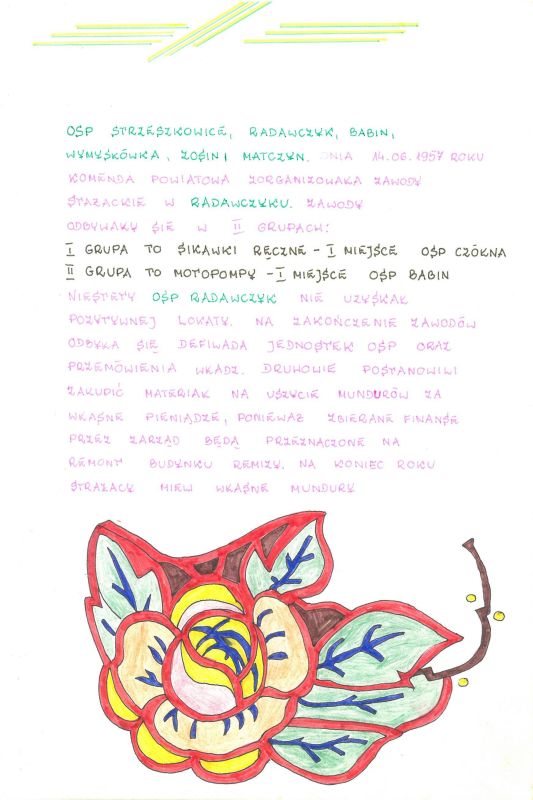 OSP STRZESZKOWICE, RADAWCZYK, BABIN,
WYMYSŁÓWKA, ZOSIN I MATCZYN. DNIA 14.06.1957 ROKU
KOMENDA POWIATOWA ZORGANIZOWAŁA ZAWODY
STRAŻACKIE W RADAWCZYKU. ZAWODY
ODBYWAŁY SIĘ W II GRUPACH:
I GRUPA TO SIKAWKI RĘCZNE - I MIEJSCE OSP CZÓŁNA
II GRUPA TO MOTOPOMPY - I MIEJSCE OSP BABIN
NIESTETY OSP RADAWCZYK NIE UZYSKAŁ
POZYTYWNEJ LOKATY. NA ZAKOŃCZENIE ZAWODÓW
ODBYŁA SIĘ DEFILADA JEDNOSTEK OSP ORAZ
PRZEMÓWIENIA WŁADZ. DRUHOWIE POSTANOWILI
ZAKUPIĆ MATERIAŁ NA USZYCIE MUNDURÓW ZA
WŁASNE PIENIĄDZE, PONIEWAŻ ZBIERANE FINANSE
PRZEZ ZARZĄD BĘDĄ PRZEZNACZONE NA
REMONT BUDYNKU REMIZY. NA KONIEC ROKU
STRAŻACY MIELI WŁASNE MUNDURY